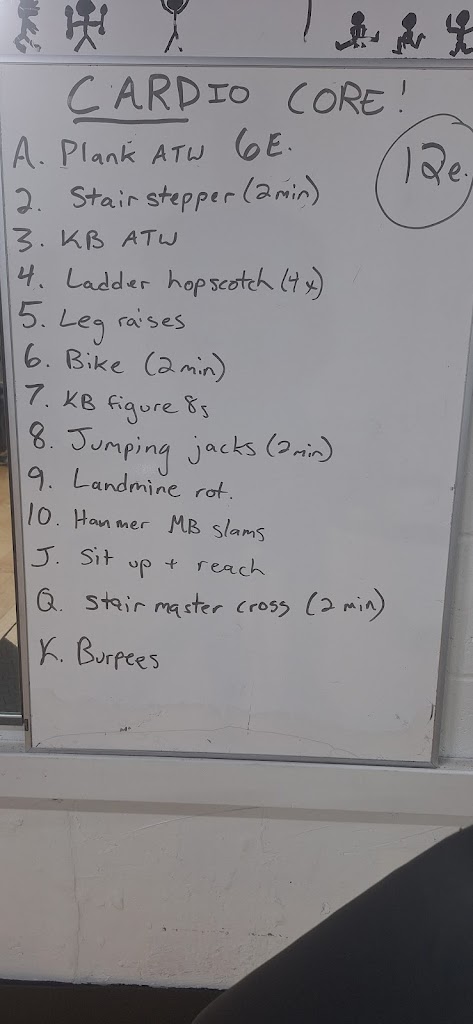 CARDIO CORE!
12e.
A. Plank ATW 6E.
2. Stair stepper (2min)
3. KB ATW
4. Ladder hopscotch (4x)
5. Leg raises
6. Bike (2min)
7. KB figure 8s
8. Jumping jacks (2min)
9. Landmine rot.
10. Hammer MB slams
J. Sit up + reach
Q. Stair master cross (2 min)
K. Burpees